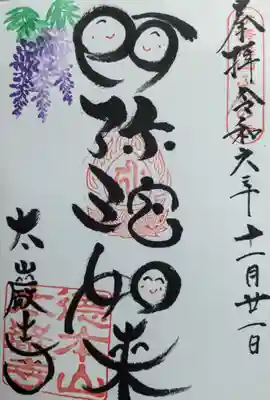 奉拝 令和六年十一月廿一日
阿弥陀如来
大巌寺